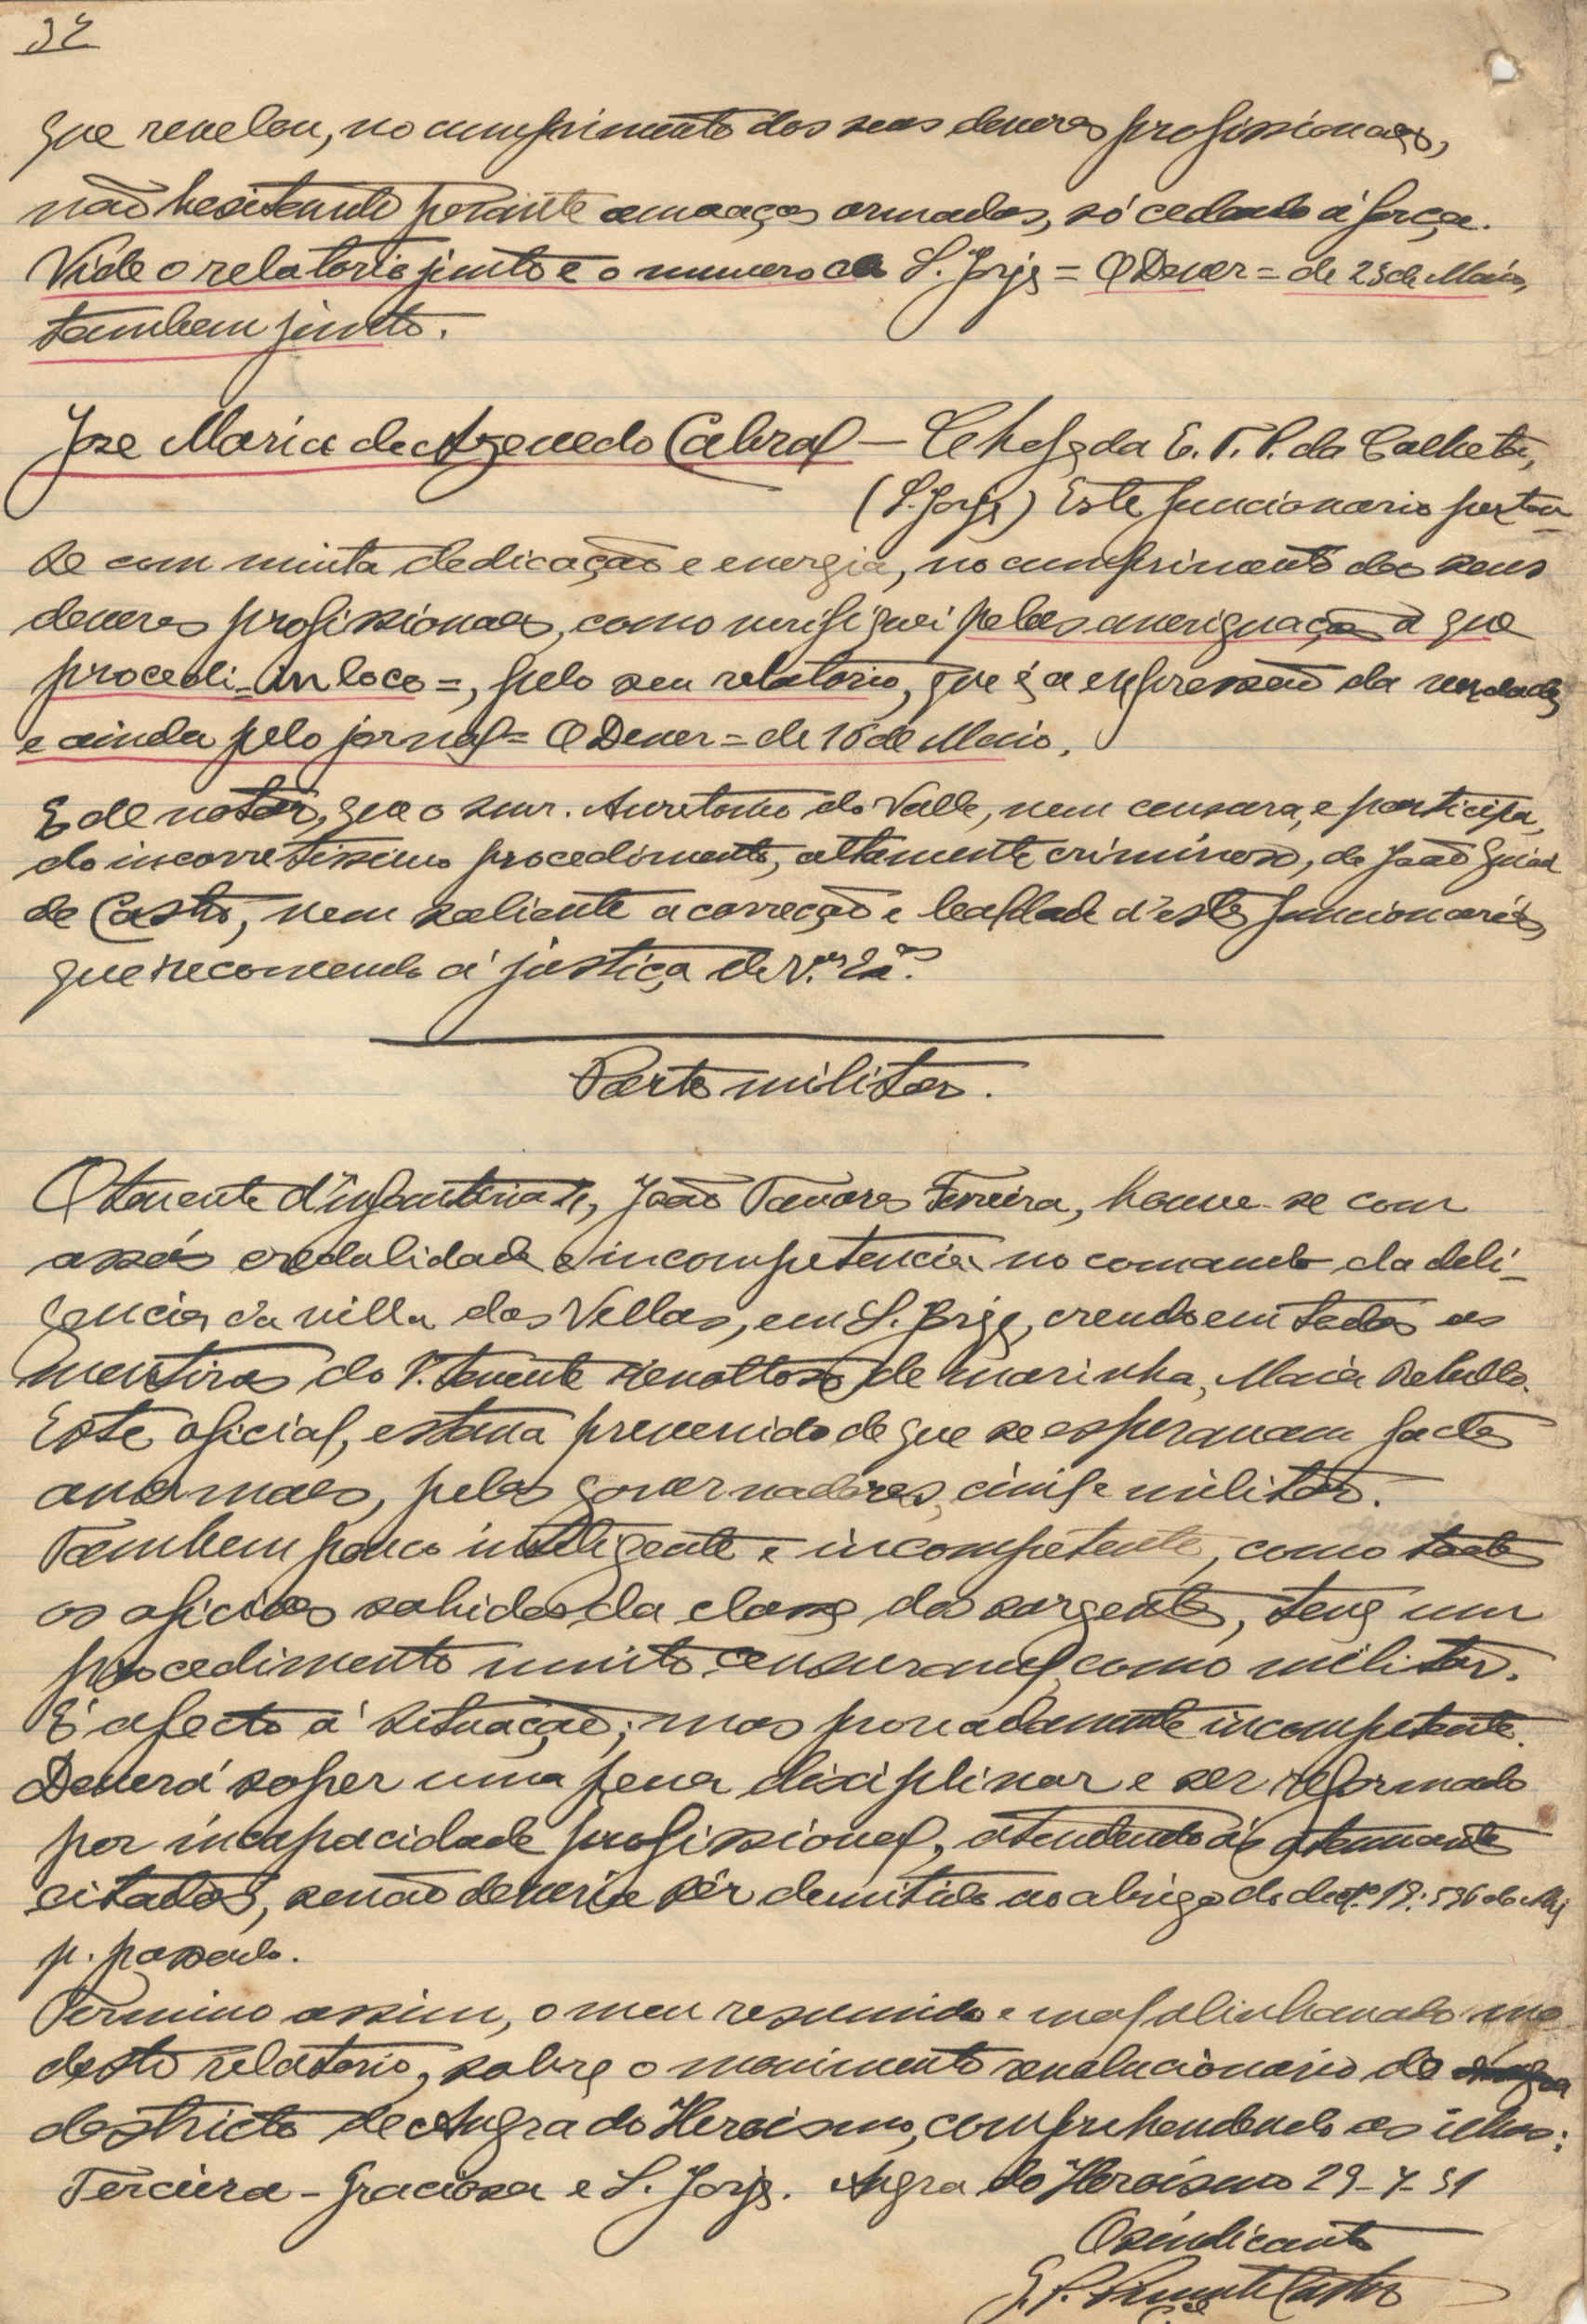 32
que revelou, no cumprimento dos seus deveres profissionaes,
não hesitando perante ameaças armadas, só cedendo á força.
Vide o relatorio junto e o numero S. Jorge = O Dever = de 23 de Maio,
tambem junto.
Jose Maria de Azevedo Cabral — Chefe da E. T. P. da Calheta,
(S. Jorge) Este funcionario portou-
se com muita dedicação e energia, no cumprimento dos seus
deveres profissionaes, como verifiquei pelas averiguações a que
procedi = in loco =, pelo seu relatorio, que é a expressão da verdade
e ainda pelo jornal = O Dever = de 16 de Maio.
É de notar, que o snr. do Valle, nem censura, e participa,
do incorretissimo procedimento, altamente criminoso, de João
de Castro, nem saliente a correcção e lealdade d'este funcionario,
que recomendo á justiça de V.as Ex.as
Parte militar.
O tenente d'infantaria João Tavares Ferreira, houve-se com
assás credulidade e incompetencia no comando da deli-
gencia á villa das Vellas, em S. Jorge, crendo em todas as
mentiras do 1.º tenente revoltoso de marinha, Maia Rebello.
Este oficial, estava prevenido de que se esperavam factos
anormaes, pelos governadores, civil e militar.
Tambem pouco inteligente e incompetente, como todos
os oficiaes sahidos da classe dos sargentos, teve um
procedimento muito censuravel, como militar.
É afecto á situação; mas provadamente incompetente.
Deverá sofrer uma pena disciplinar e ser reformado
por incapacidade profissional, atendendo ás atenuantes
citadas, senão deveria sêr demitido ao abrigo do dec.to 19:596 de
p. passado.
Termino assim, o meu resumido e mal alinhavado mo-
desto relatorio, sobre o movimento revolucionario do
destricto de Angra do Heroismo, comprehendendo as ilhas:
Terceira - Graciosa e S. Jorge. Angra do Heroismo 29-7-31
O sindicante